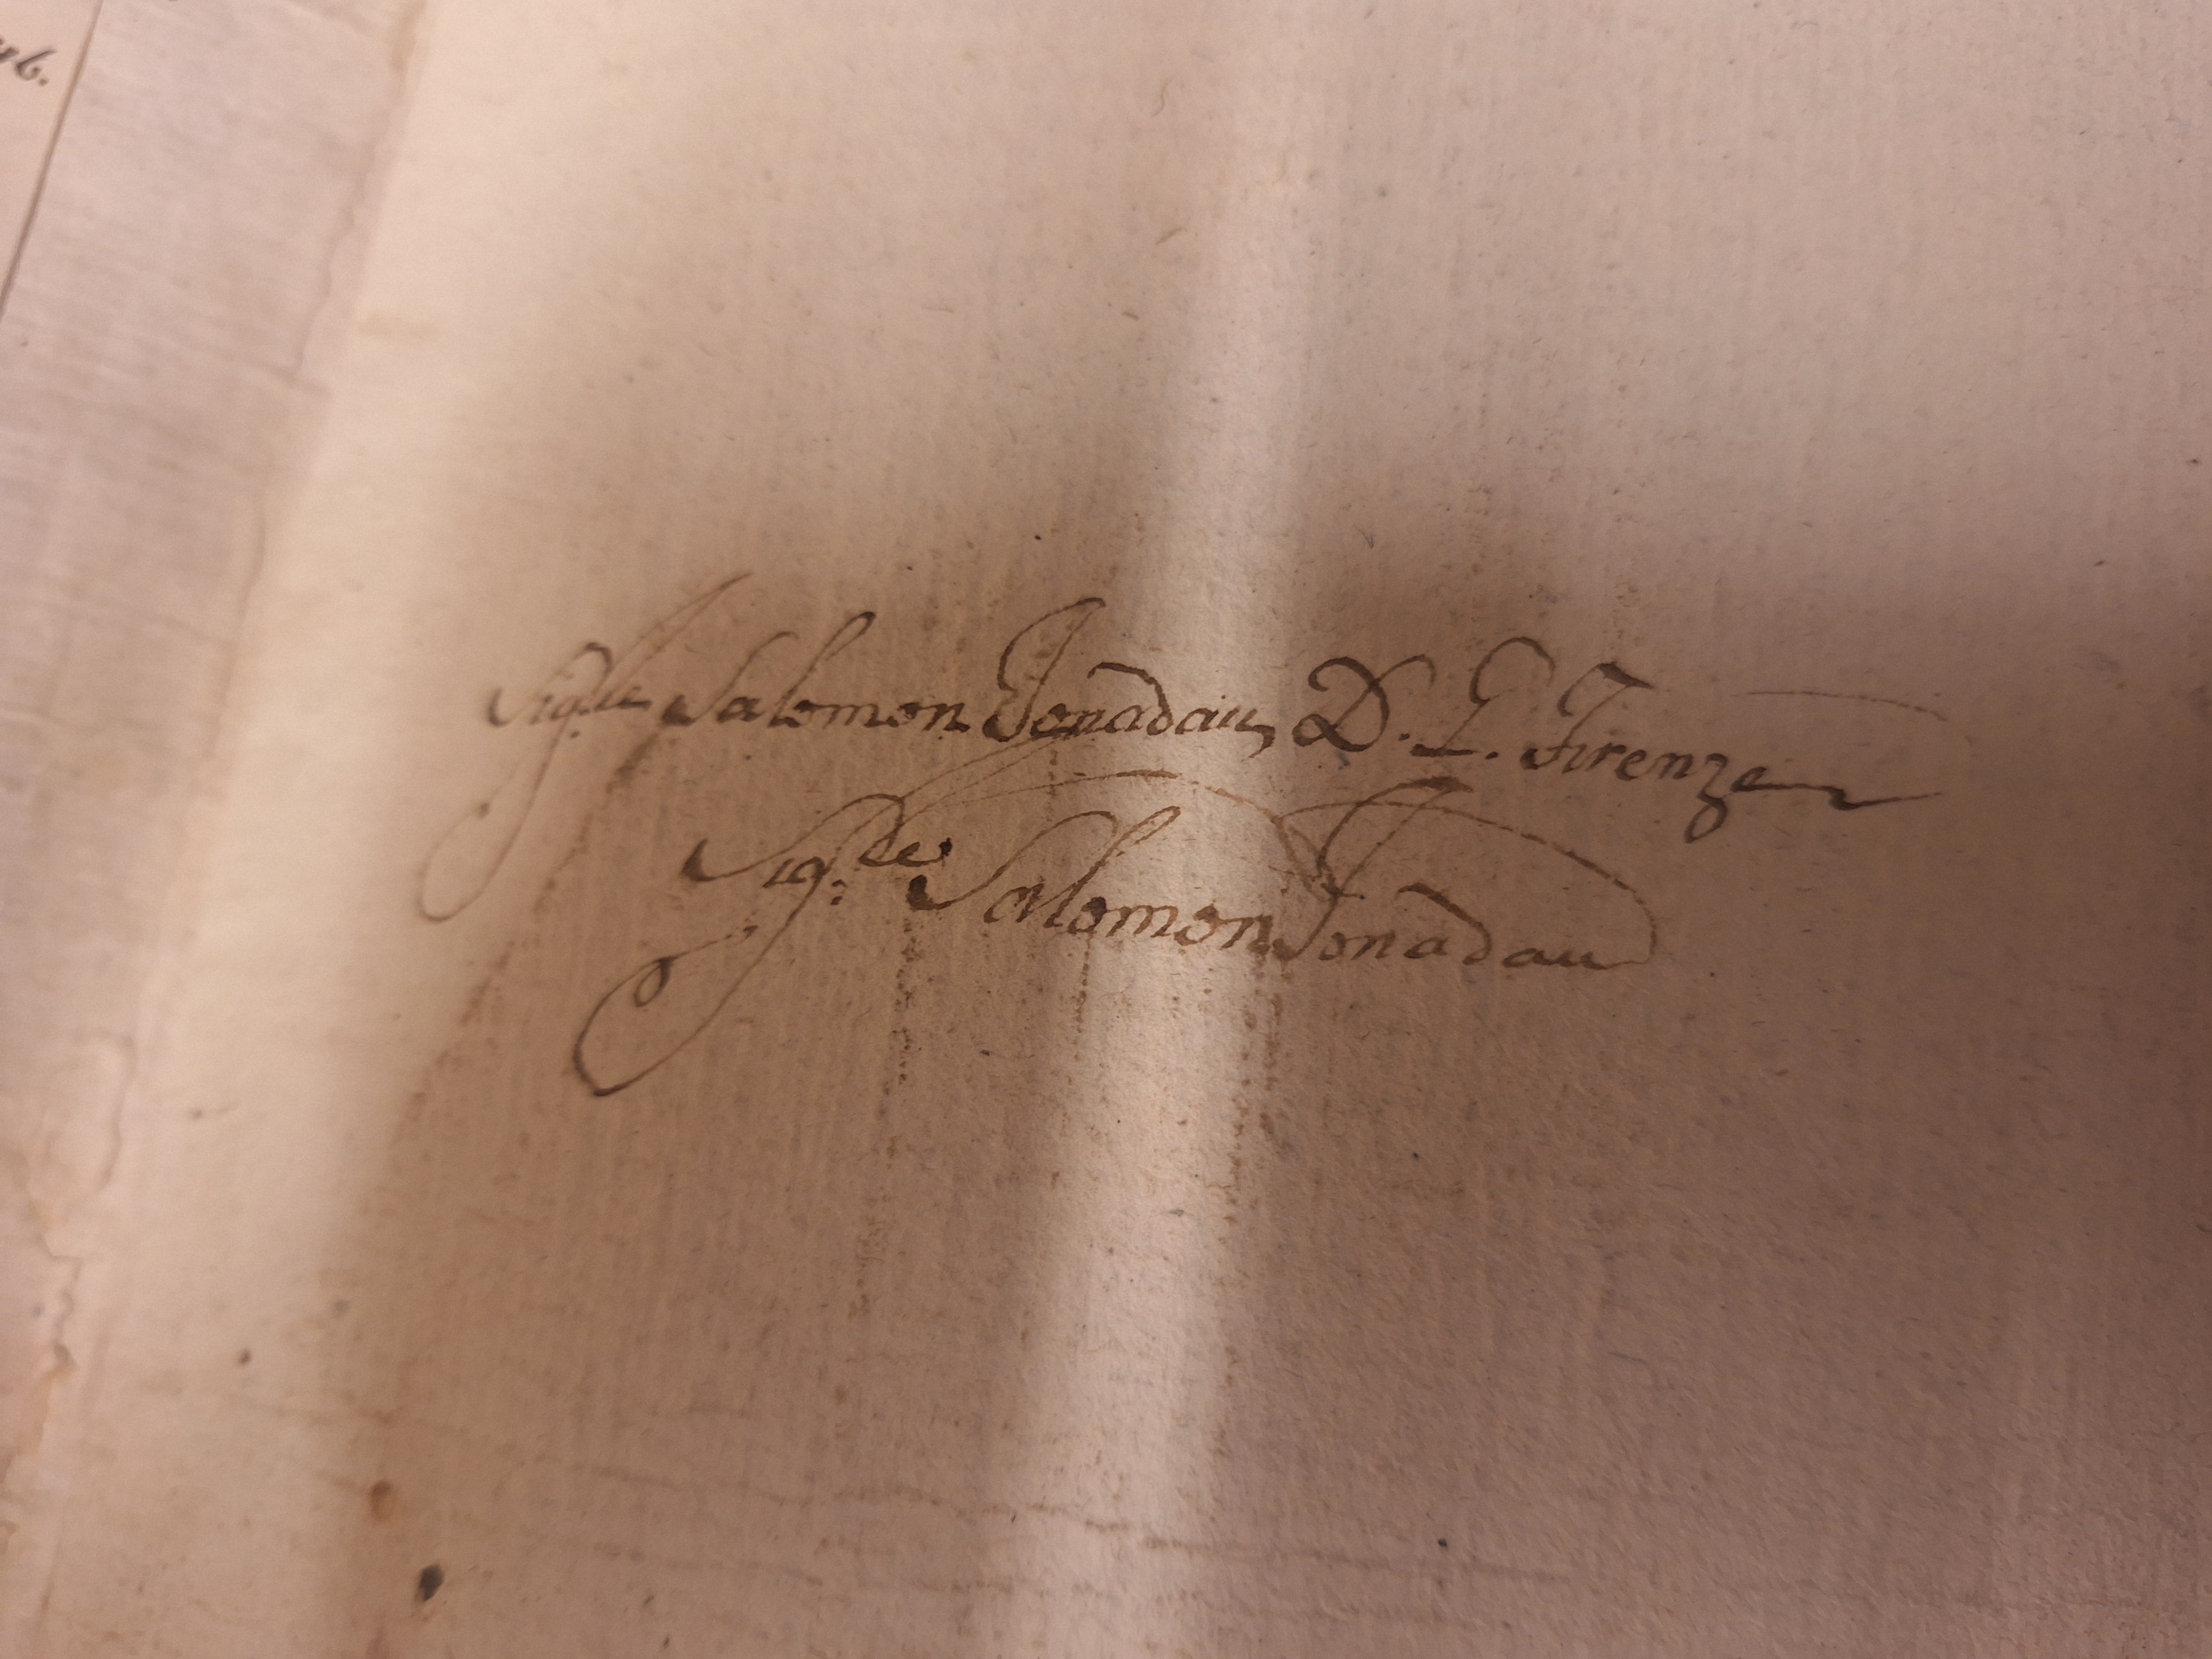 Sig.re Salomon Jonadau, D. L. Firenze
Sig.re Salomon Jonadau